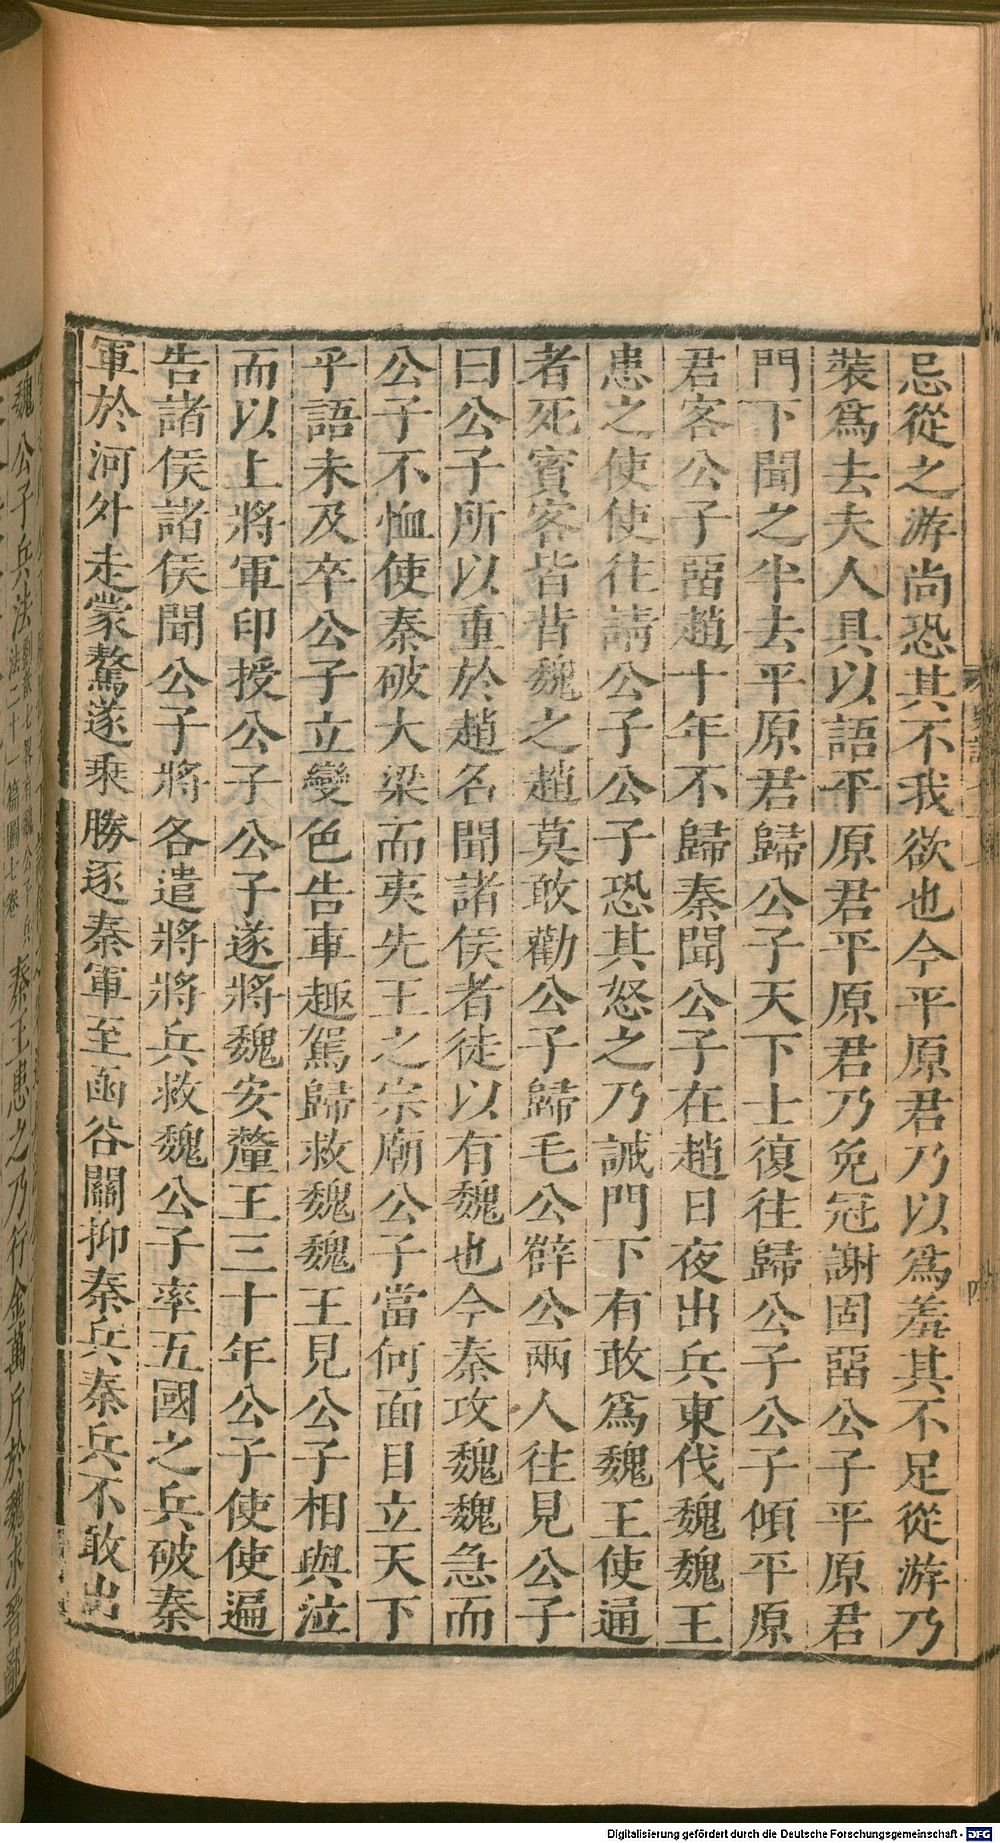 忌從之游尚恐其不我欲也今平原君乃以爲羞其不足從游乃
裝爲去夫人具以語平原君平原君乃免冠謝固畱公子平原君
門下聞之半去平原君歸公子天下士復往歸公子公子傾平原
君客公子畱趙十年不歸秦聞公子在趙日夜出兵東伐魏魏王
患之使使往請公子公子恐其怒之乃誡門下有敢爲魏王使通
者死賓客皆背魏之趙莫敢勸公子歸毛公薛公兩人往見公子
曰公子所以重於趙名聞諸侯者徒以有魏也今秦攻魏魏急而
公子不恤使秦破大梁而夷先王之宗廟公子當何面目立天下
乎語未及卒公子立變色告車趣駕歸救魏魏王見公子相與泣
而以上將軍印授公子公子遂將魏安釐王三十年公子使使遍
告諸侯諸侯聞公子將各遣將將兵救魏公子率五國之兵破秦
軍於河外走蒙驁遂乘勝逐秦軍至函谷關抑秦兵秦兵不敢出
魏公子兵法
秦王患之乃行金萬斤於魏求晉鄙
Digitalisierung gefördert durch die Deutsche Forschungsgemeinschaft - DFG